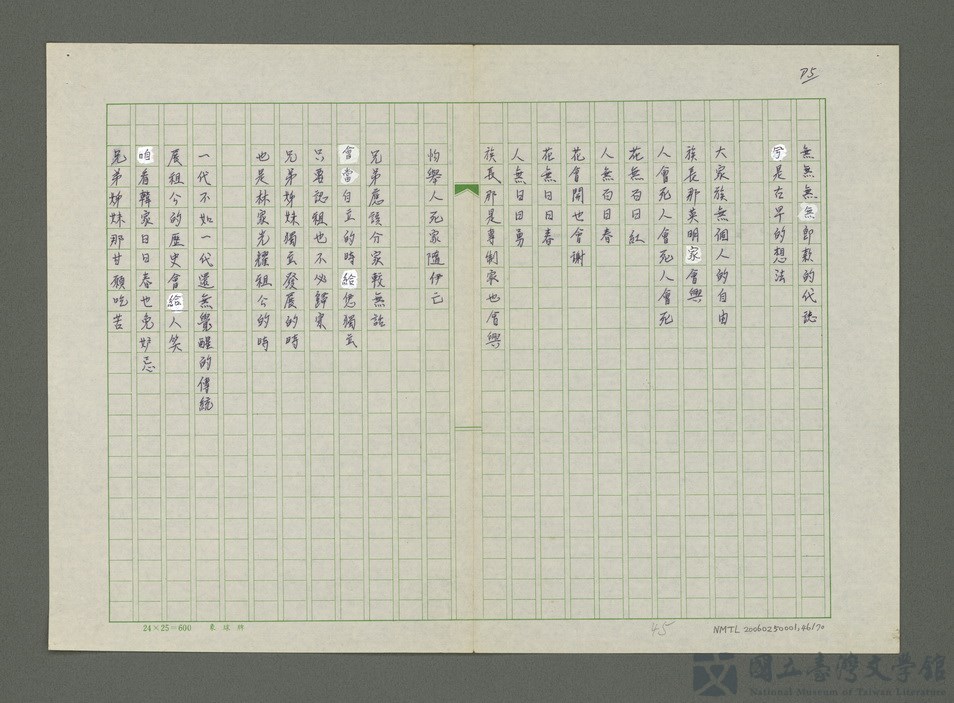 P5
無無無無即款的代誌
是古早的想法
大家族無個人的自由
族長那英明家會興
人會死人會死人會死
花無百日紅
人無百日春
花會開也會謝
花無日日春
人無日日勇
族長那是專制家也會興
怕舉人死家隨伊亡
兄弟應該分家較無話
會當自立的時給您獨立
只著認祖也不必歸宗
兄弟姊妹獨立發展的時
也是林家光耀祖公的時
一代不如一代還無覺醒的傳統
展祖公的歷史會給人笑
咱看韓家日日春也免妒忌
兄弟姊妹那甘願吃苦
24×25=600
45
NMTL 20060250001,46/70
國立臺灣文學館
National Museum of Taiwan Literature